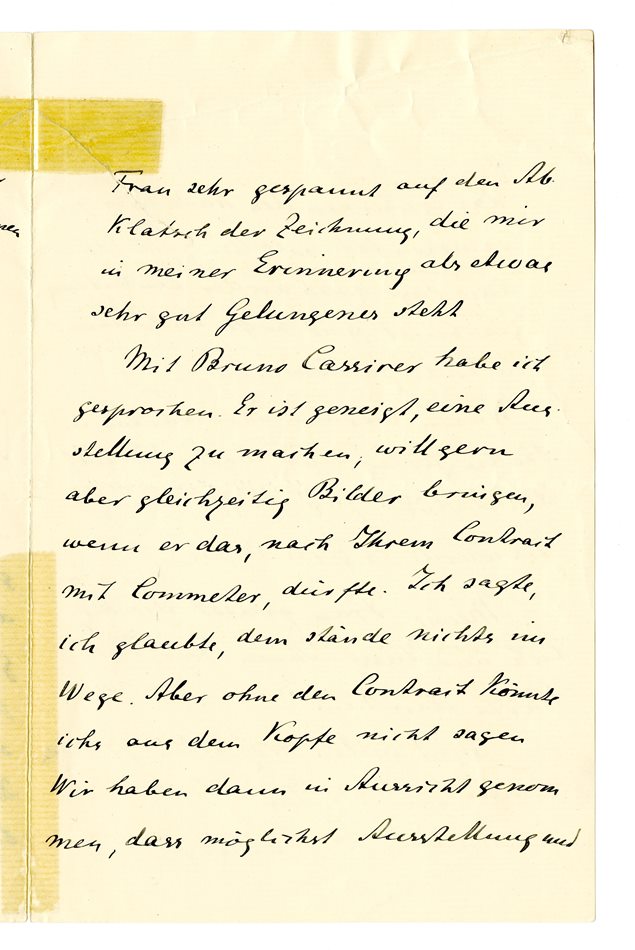 nen
Frau sehr gespannt auf den Ab-
klatsch der Zeichnung, die mir
in meiner Erinnerung als etwas
sehr gut Gelungenes steht
Mit Bruno Cassirer habe ich
gesprochen. Er ist geneigt, eine Aus-
stellung zu machen, will gern
aber gleichzeitig Bilder bringen,
wenn er das, nach Ihrem Contract
mit Commeter, dürfte. Ich sagte,
ich glaubte, dem stände nichts im
Wege. Aber ohne den Contract könnte
ichs aus dem Kopfe nicht sagen
Wir haben dann in Aussicht genom
men, dass möglichst Ausstellung und